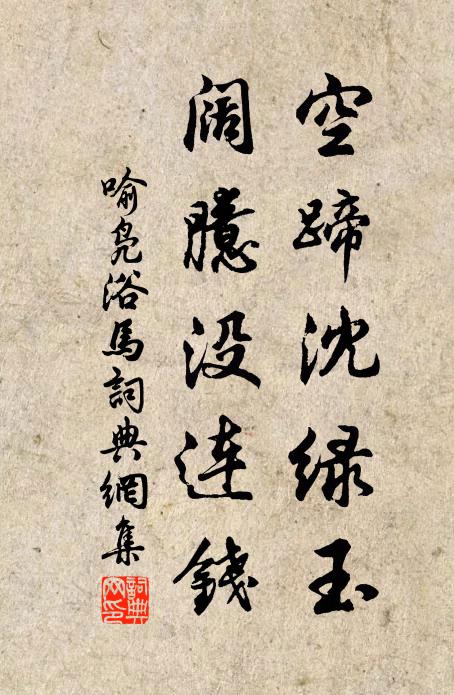 空蹄沈绿玉
阔臆没连錢
喻凫浴馬詞典網集
詞典网印